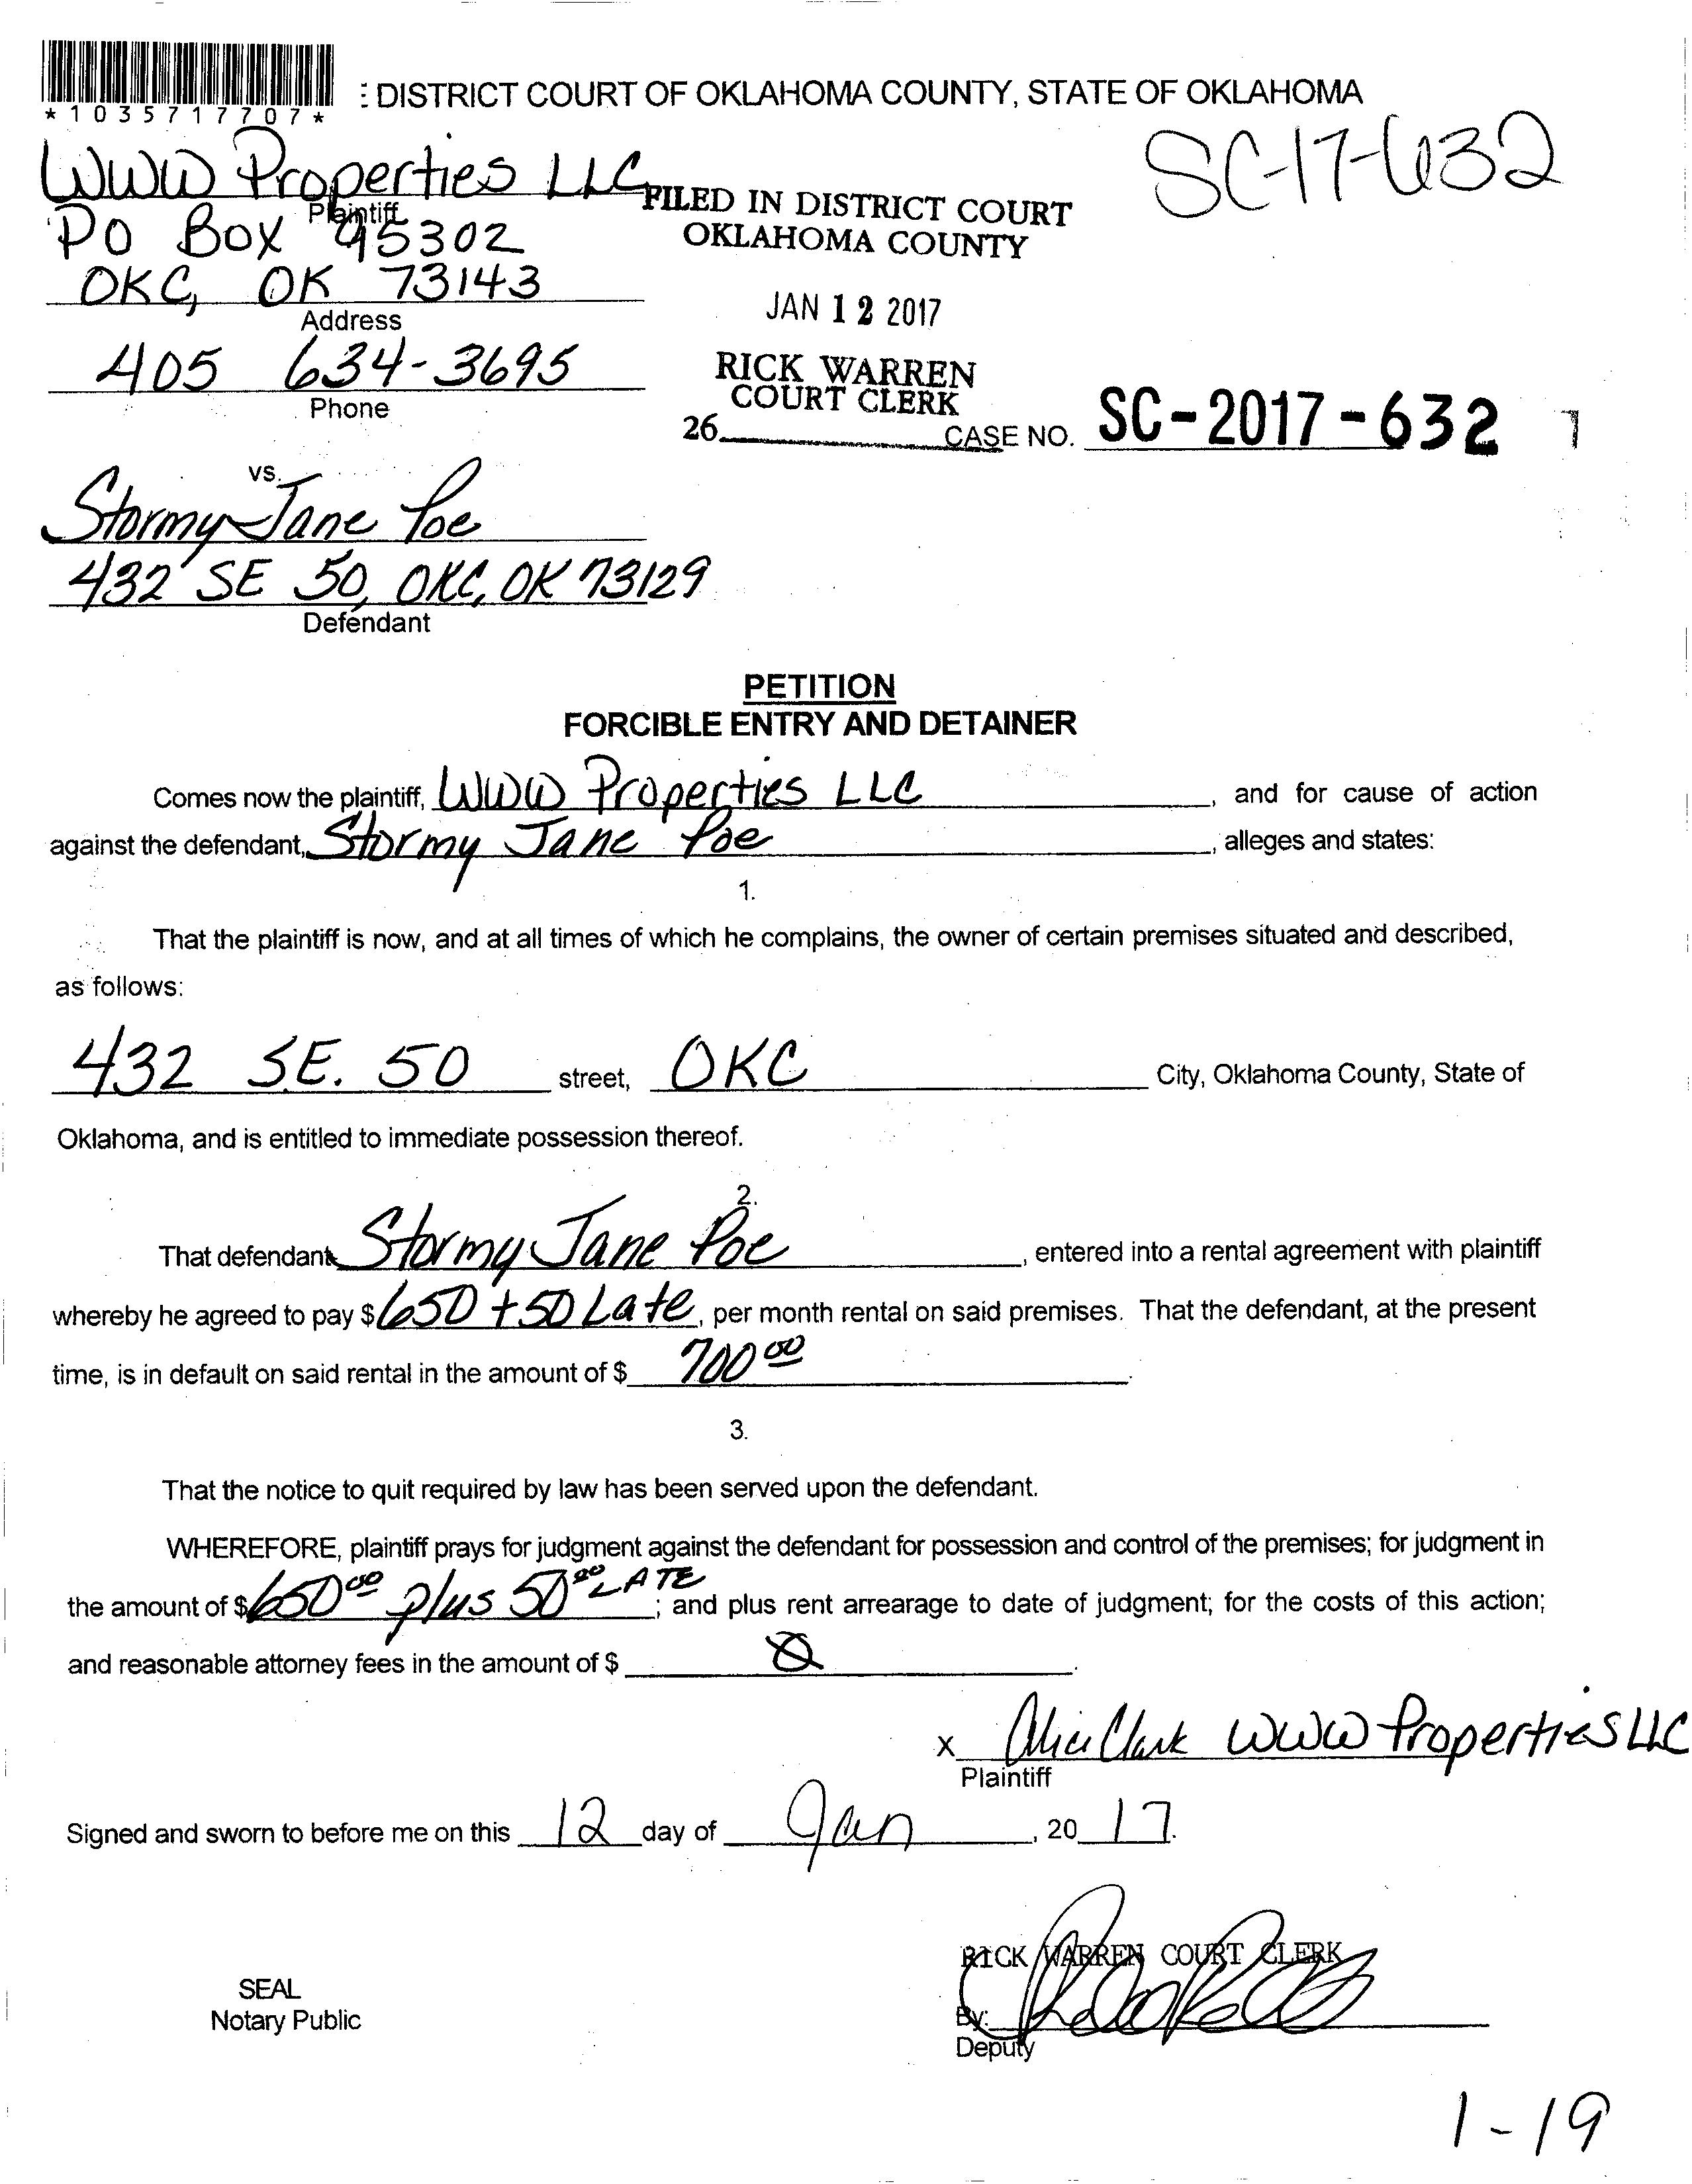 *1035717707*
: DISTRICT COURT OF OKLAHOMA COUNTY, STATE OF OKLAHOMA
SC-17-632
WWW Properties LLC
Plaintiff
PO Box 95302
OKC, OK 73143
Address
405 634-3695
Phone
FILED IN DISTRICT COURT
OKLAHOMA COUNTY
JAN 12 2017
RICK WARREN
COURT CLERK
26
CASE NO. SC-2017-632
vs.
Stormy Jane Poe
432 SE 50, OKC, OK 73129
Defendant
PETITION
FORCIBLE ENTRY AND DETAINER
Comes now the plaintiff, WWW Properties LLC, and for cause of action
against the defendant, Stormy Jane Poe, alleges and states:
1.
That the plaintiff is now, and at all times of which he complains, the owner of certain premises situated and described,
as follows:
432 S.E. 50 street, OKC City, Oklahoma County, State of
Oklahoma, and is entitled to immediate possession thereof.
2.
That defendant Stormy Jane Poe, entered into a rental agreement with plaintiff
whereby he agreed to pay $ 650 + 50 Late, per month rental on said premises. That the defendant, at the present
time, is in default on said rental in the amount of $ 700 00.
3.
That the notice to quit required by law has been served upon the defendant.
WHEREFORE, plaintiff prays for judgment against the defendant for possession and control of the premises; for judgment in
the amount of $ 650 00 plus 50 00 LATE; and plus rent arrearage to date of judgment; for the costs of this action;
and reasonable attorney fees in the amount of $ .
x Alice Clark WWW Properties LLC
Plaintiff
Signed and sworn to before me on this 12 day of Jan, 20 17.
RICK WARREN COURT CLERK
SEAL
Notary Public
By:
Deputy
1-19